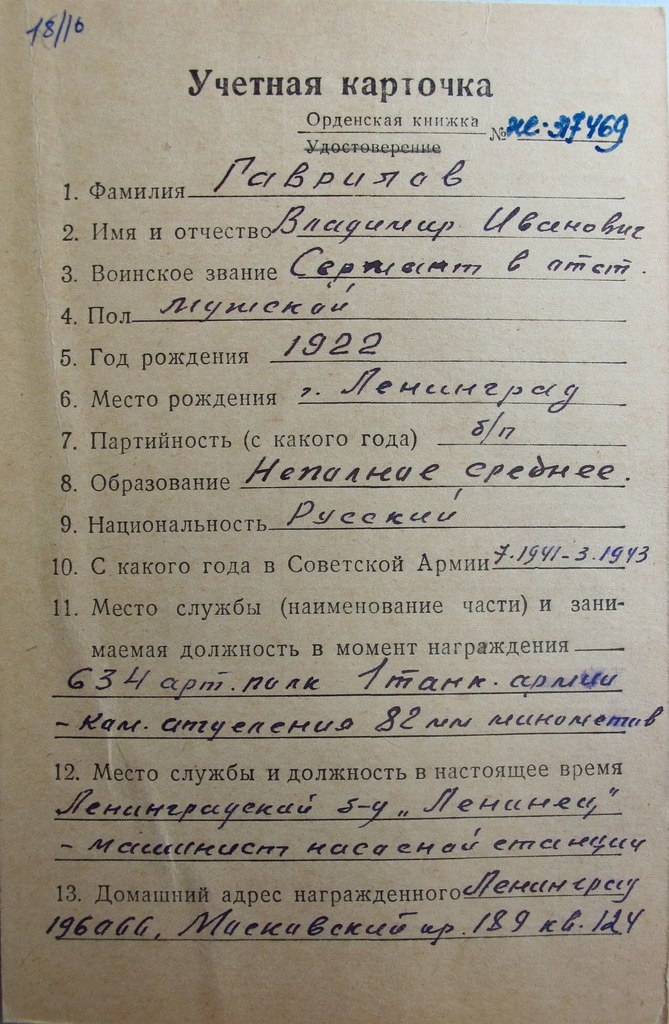 18/10
Учетная карточка
Орденская книжка
Удостоверение
№ же-317469
1. Фамилия Гаврилов
2. Имя и отчество Владимир Иванович
3. Воинское звание Сержант в отст.
4. Пол мужской
5. Год рождения 1922
6. Место рождения г. Ленинград
7. Партийность (с какого года) б/п
8. Образование Неполное среднее.
9. Национальность Русский
10. С какого года в Советской Армии 7.1941-3.1943
11. Место службы (наименование части) и зани-
маемая должность в момент награждения
634 арт. полк 1 танк. армии
- ком. отделения 82 мм минометов
12. Место службы и должность в настоящее время
Ленинградский з-д „Ленинец"
- машинист насосной станции
13. Домашний адрес награжденного Ленинград
196066, Московский пр. 189 кв. 124